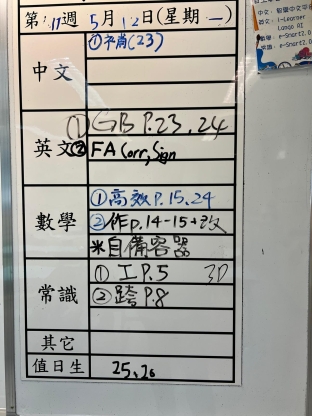 第17週 5月12日(星期一)
中文
①補(23)
英文
① GB P.23, 24
② FA Corr, Sign
數學
①高效P.15, 24
②作P.14-15+改
*自備容器
常識
① 工P.5 3D
② 跨P.8
其它
值日生
25, 26
中文:
英文: i-Learner
e-Smart2.0
常識: e-Smart2.0